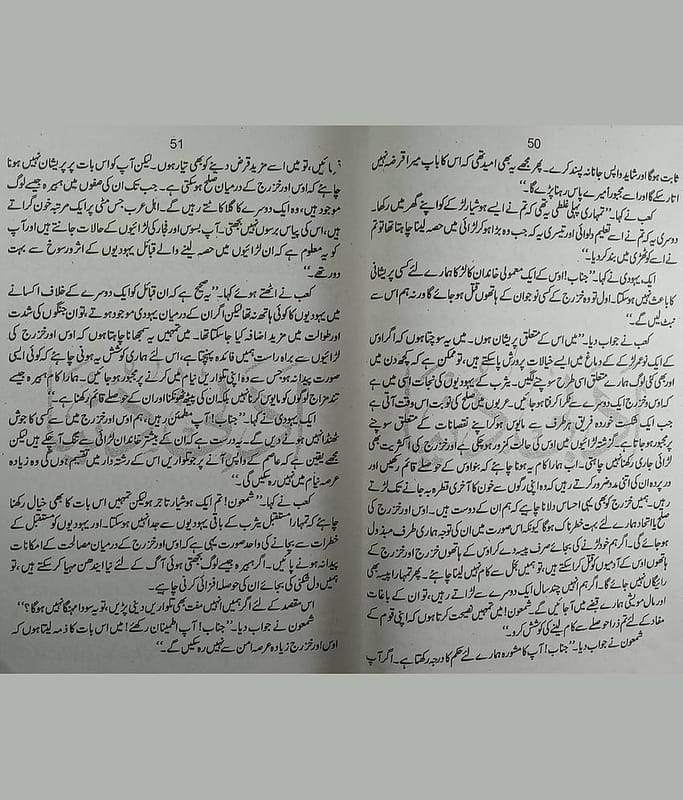 50
ثابت ہوگا اور شاید واپس جانا نہ پسند کرے۔ پھر مجھے یہ بھی امید تھی کہ اس کا باپ میرا قرضہ نہیں
اتار سکے گا اور اسے مجبوراً میرے پاس رہنا پڑے گا۔‘‘
کعب نے کہا۔ ’’تمہاری پہلی غلطی یہ تھی کہ تم نے ایسے ہوشیار لڑکے کو اپنے گھر میں رکھا۔
دوسری یہ کہ تم نے اسے تعلیم دلوائی اور تیسری یہ کہ جب وہ بڑا ہو کر لڑائی میں حصہ لینا چاہتا تھا تو تم
نے اسے کوٹھڑی میں بند کر دیا۔‘‘
ایک یہودی نے کہا۔ ’’جناب! اوس کے ایک معمولی خاندان کا لڑکا ہمارے لئے کسی پریشانی
کا باعث نہیں ہو سکتا۔ اول تو وہ خزرج کے کسی نوجوان کے ہاتھوں قتل ہو جائے گا ورنہ ہم اس سے
نبٹ لیں گے۔‘‘
کعب نے جواب دیا۔ ’’میں اس کے متعلق پریشان ہوں۔ میں یہ سوچتا ہوں کہ اگر اوس
کے ایک نوعمر لڑکے کے دماغ میں ایسے خیالات پرورش پا سکتے ہیں، تو ممکن ہے کہ کچھ دن میں
اور بھی کئی لوگ ہمارے متعلق اسی طرح سوچنے لگیں۔ یثرب کے یہودیوں کی نجات اسی میں ہے
کہ اوس و خزرج ایک دوسرے سے ٹکرا کر فنا ہو جائیں۔ عربوں میں صلح کی نوبت اس وقت آتی ہے
جب ایک شکست خوردہ فریق ہر طرف سے مایوس ہو کر اپنے نقصانات کے متعلق سوچنے
پر مجبور ہو جاتا ہے۔ گزشتہ لڑائیوں میں اوس کی حالت کمزور ہو چکی ہے اور خزرج کی اکثریت بھی
لڑائی جاری رکھنا نہیں چاہتی۔ اب ہمارا کام یہ ہونا چاہئے کہ بنو اوس کے حوصلے قائم رکھیں اور
در پردہ ان کی اتنی مدد ضرور کرتے رہیں کہ وہ اپنی رگوں سے خون کا آخری قطرہ بہہ جانے تک لڑتے
رہیں۔ ہمیں خزرج کو بھی یہی احساس دلانا چاہئے کہ ہم ان کے دوست ہیں۔ اوس اور خزرج کی
صلح یا اتحاد ہمارے لئے بہت خطرناک ہوگا کیونکہ اس صورت میں ان کی توجہ ہماری طرف مبذول
ہو جائے گی۔ اگر ہم خود لڑنے کی بجائے صرف پیسہ دے کر اوس کے ہاتھوں خزرج اور خزرج کے
ہاتھوں اوس کے آدمیوں کو قتل کرا سکتے ہیں، تو ہمیں بخل سے کام نہیں لینا چاہئے۔ پھر تمہارا پیسہ بھی
رائیگاں نہیں جائے گا۔ اگر ہم انہیں چند سال ایک دوسرے سے لڑاتے رہیں، تو ان کے باغات
اور مال مویشی ہمارے قبضے میں آ جائیں گے۔ شمعون! میں تمہیں نصیحت کرتا ہوں کہ اپنی قوم کے
مفاد کے لئے تم ذرا حوصلے سے کام لینے کی کوشش کرو۔‘‘
شمعون نے جواب دیا۔ ’’جناب! آپ کا مشورہ ہمارے لئے حکم کا درجہ رکھتا ہے۔ اگر آپ
51
فرمائیں، تو میں اسے مزید قرض دینے کو بھی تیار ہوں۔ لیکن آپ کو اس بات پر پریشان نہیں ہونا
چاہئے کہ اوس اور خزرج کے درمیان صلح ہو سکتی ہے۔ جب تک ان کی صفوں میں ہبیرہ جیسے لوگ
موجود ہیں، وہ ایک دوسرے کا گلا کاٹتے رہیں گے۔ اہل عرب جس مٹی پر ایک مرتبہ خون گراتے
ہیں، اس کی پیاس برسوں نہیں بجھتی۔ آپ بسوس اور فجار کی لڑائیوں کے حالات جانتے ہیں اور آپ
کو یہ معلوم ہے کہ ان لڑائیوں میں حصہ لینے والے قبائل یہودیوں کے اثر و رسوخ سے بہت
دور تھے۔‘‘
کعب نے اٹھتے ہوئے کہا۔ ’’یہ صحیح ہے کہ ان قبائل کو ایک دوسرے کے خلاف اکسانے
میں یہودیوں کا کوئی ہاتھ نہ تھا لیکن اگر ان کے درمیان یہودی موجود ہوتے، تو ان جنگوں کی شدت
اور طوالت میں مزید اضافہ کیا جا سکتا تھا۔ میں تمہیں یہ سمجھانا چاہتا ہوں کہ اوس اور خزرج کی
لڑائیوں سے براہ راست ہمیں فائدہ پہنچتا ہے، اس لئے ہماری کوشش یہ ہونی چاہئے کہ کوئی ایسی
صورت پیدا نہ ہو جس سے وہ اپنی تلواریں نیام میں کرنے پر مجبور ہو جائیں۔ ہمارا کام ہبیرہ جیسے
تند مزاج لوگوں کو مایوس کرنا نہیں بلکہ ان کی پیٹھ ٹھونکنا اور ان کے حوصلے قائم رکھنا ہے۔‘‘
ایک یہودی نے کہا۔ ’’جناب! آپ مطمئن رہیں، ہم اوس اور خزرج میں سے کسی کا جوش
ٹھنڈا نہیں ہونے دیں گے۔ یہ درست ہے کہ ان کے بیشتر خاندان لڑائی سے تنگ آ چکے ہیں لیکن
مجھے یقین ہے کہ عاصم کے واپس آنے پر جو تلواریں اس کے رشتہ دار میں تقسیم ہوں گی وہ زیادہ
عرصہ نیام میں نہیں رہ سکیں گی۔‘‘
کعب نے کہا۔ ’’شمعون! تم ایک ہوشیار تاجر ہو لیکن تمہیں اس بات کا بھی خیال رکھنا
چاہئے کہ تمہارا مستقبل یثرب کے باقی یہودیوں سے جدا نہیں ہو سکتا۔ اور یہودیوں کو مستقبل کے
خطرات سے بچانے کی واحد صورت یہی ہے کہ اوس اور خزرج کے درمیان مصالحت کے امکانات
پیدا نہ ہونے پائیں۔ اگر ہبیرہ جیسے لوگ بجھتی ہوئی آگ کے لئے نیا ایندھن مہیا کر سکتے ہیں، تو
ہمیں دل شکنی کی بجائے ان کی حوصلہ افزائی کرنی چاہیے۔
اس مقصد کے لئے اگر ہمیں انہیں مفت بھی تلواریں دینی پڑیں، تو یہ سودا مہنگا نہیں ہوگا؟‘‘
شمعون نے جواب دیا۔ ’’جناب! آپ اطمینان رکھئے! میں اس بات کا ذمہ لیتا ہوں کہ
اوس اور خزرج زیادہ عرصہ امن سے نہیں رہ سکیں گے۔‘‘